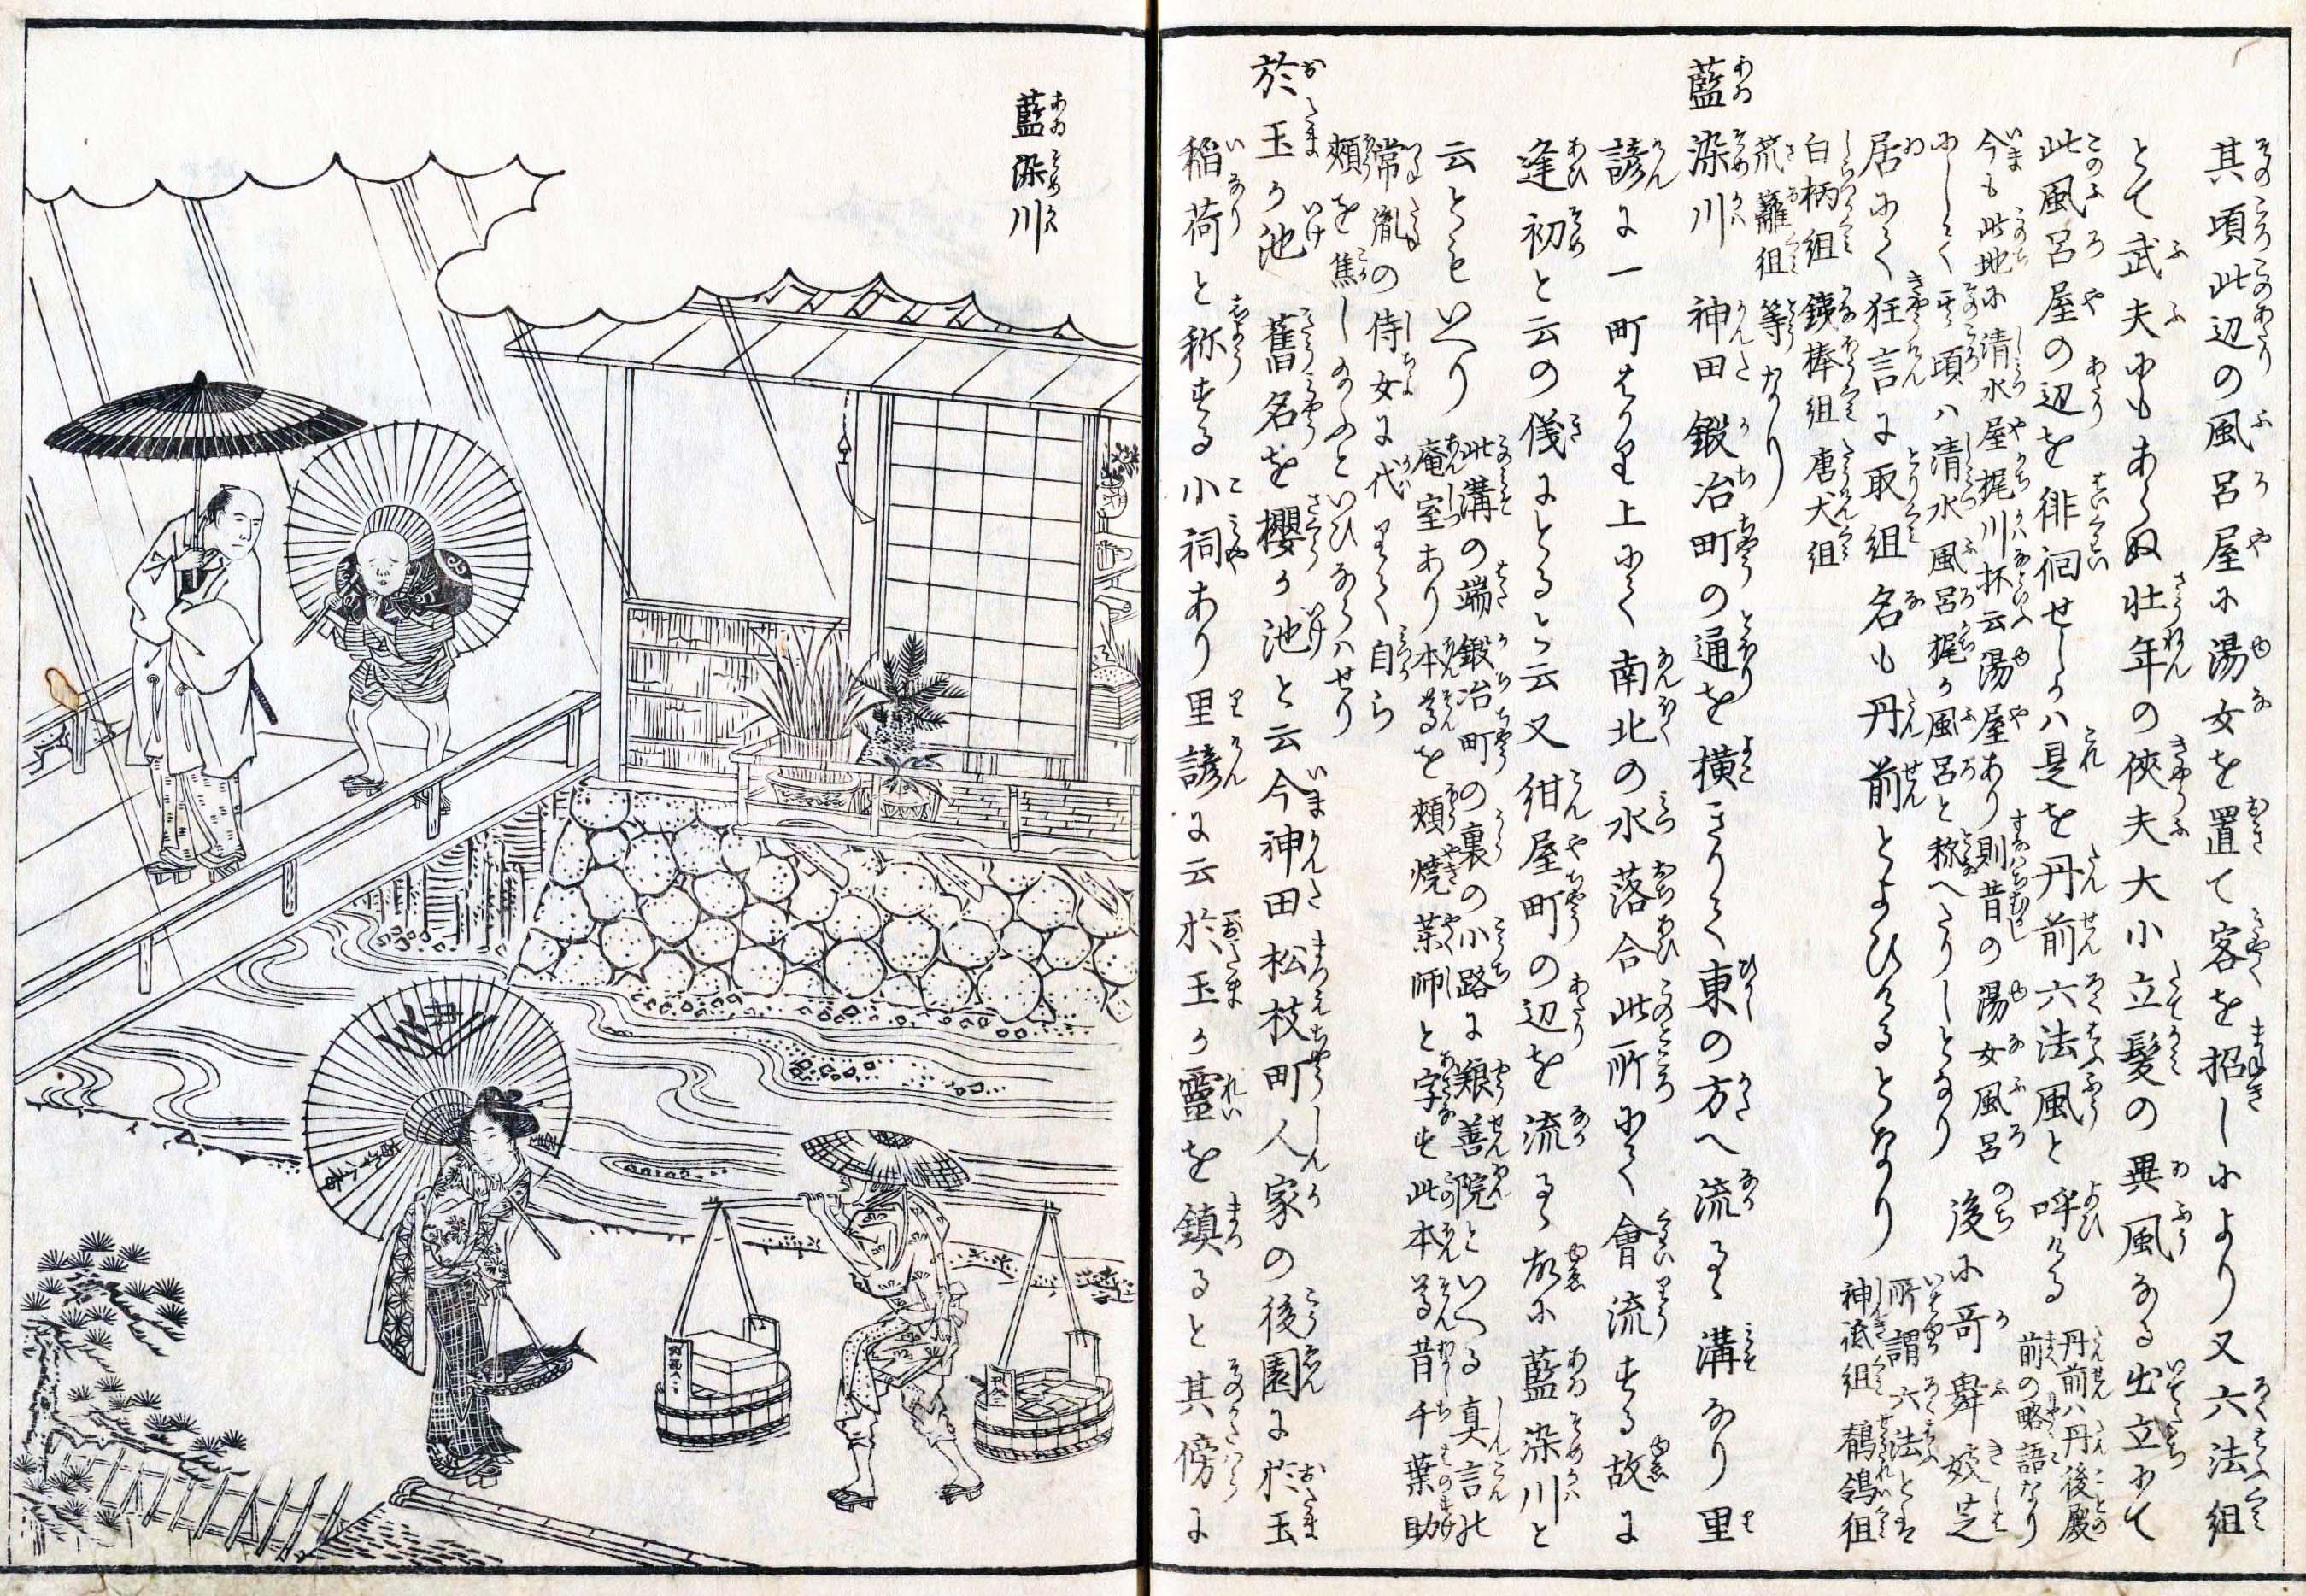 其頃此辺の風呂屋に湯女を置て客を招しにより又六法組
とて武夫にもあらぬ壮年の侠夫大小立髪の異風なる出立にて
此風呂屋の辺を徘徊せしかハ是を丹前六法風と呼ける
丹前ハ丹後殿
前の略語なり
今も此地に清水屋梶川抔云湯屋あり則昔の湯女風呂
にして其頃ハ清水風呂梶か風呂と称へたりしとなり
後に哥舞妓芝
居にて狂言に取組名も丹前とよひけるとなり
所謂六法とは
神祇組鶺鴒組
白柄組鉄棒組唐犬組
荒籬組等なり
藍染川 神田鍛冶町の通を横きりて東の方へ流るゝ溝なり里
諺に一町はかり上にて南北の水落合此所にて會流する故に
逢初と云の儀によるとも云又紺屋町の辺を流るゝ故に藍染川と
云ともいへり
此溝の端鍛冶町の裏の小路に艱善院といへる真言の
庵室あり本尊を頬焼薬師と字す此本尊昔千葉助
常胤の侍女に代りて自ら
頬を焦しめ給ふといひならハせり
於玉か池 舊名を櫻か池と云今神田松枝町人家の後園に於玉
稲荷と称する小祠あり里諺に云於玉か靈を鎮ると其傍に
藍染川